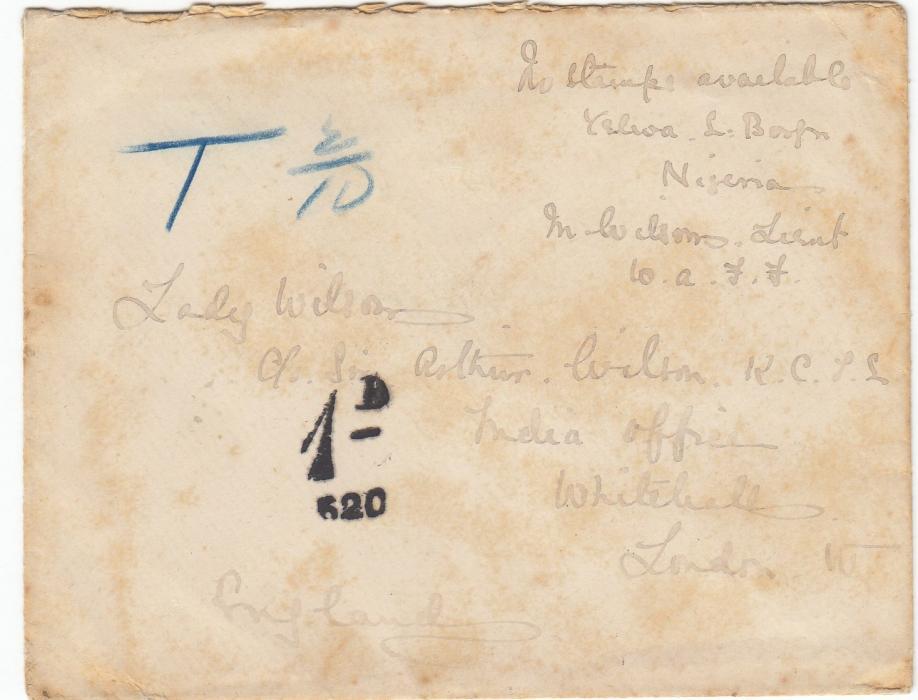 No stamps available
Yelwa. L. Borgu
Nigeria
M Wilson. Lieut
W. a. F. F.
T
10
Lady Wilson
c/o. Sir Arthur. Wilson. K. C. I. E
India Office
Whitehall
London W
England
1D
520